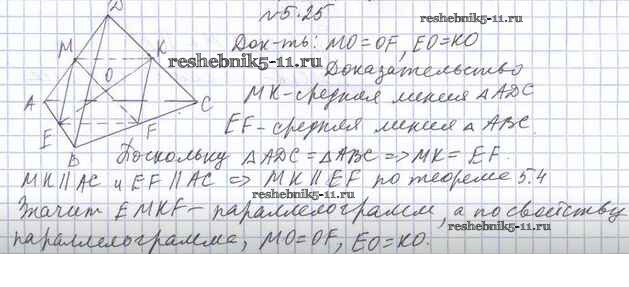 №5.25
reshebnik5-11.ru
D
M
K
O
A
C
E
F
B
Док-ть: MO=OF, EO=KO
reshebnik5-11.ru
Доказательство
MK-средняя линия △ADC
EF-средняя линия △ABC.
Поскольку △ADC=△ABC=>MK=EF.
MK||AC и EF||AC => MK||EF по теореме 5.4
reshebnik5-11.ru
Значит EMKF-параллелограмм, а по свойству
параллелограмма, MO=OF, EO=KO.
reshebnik5-11.ru